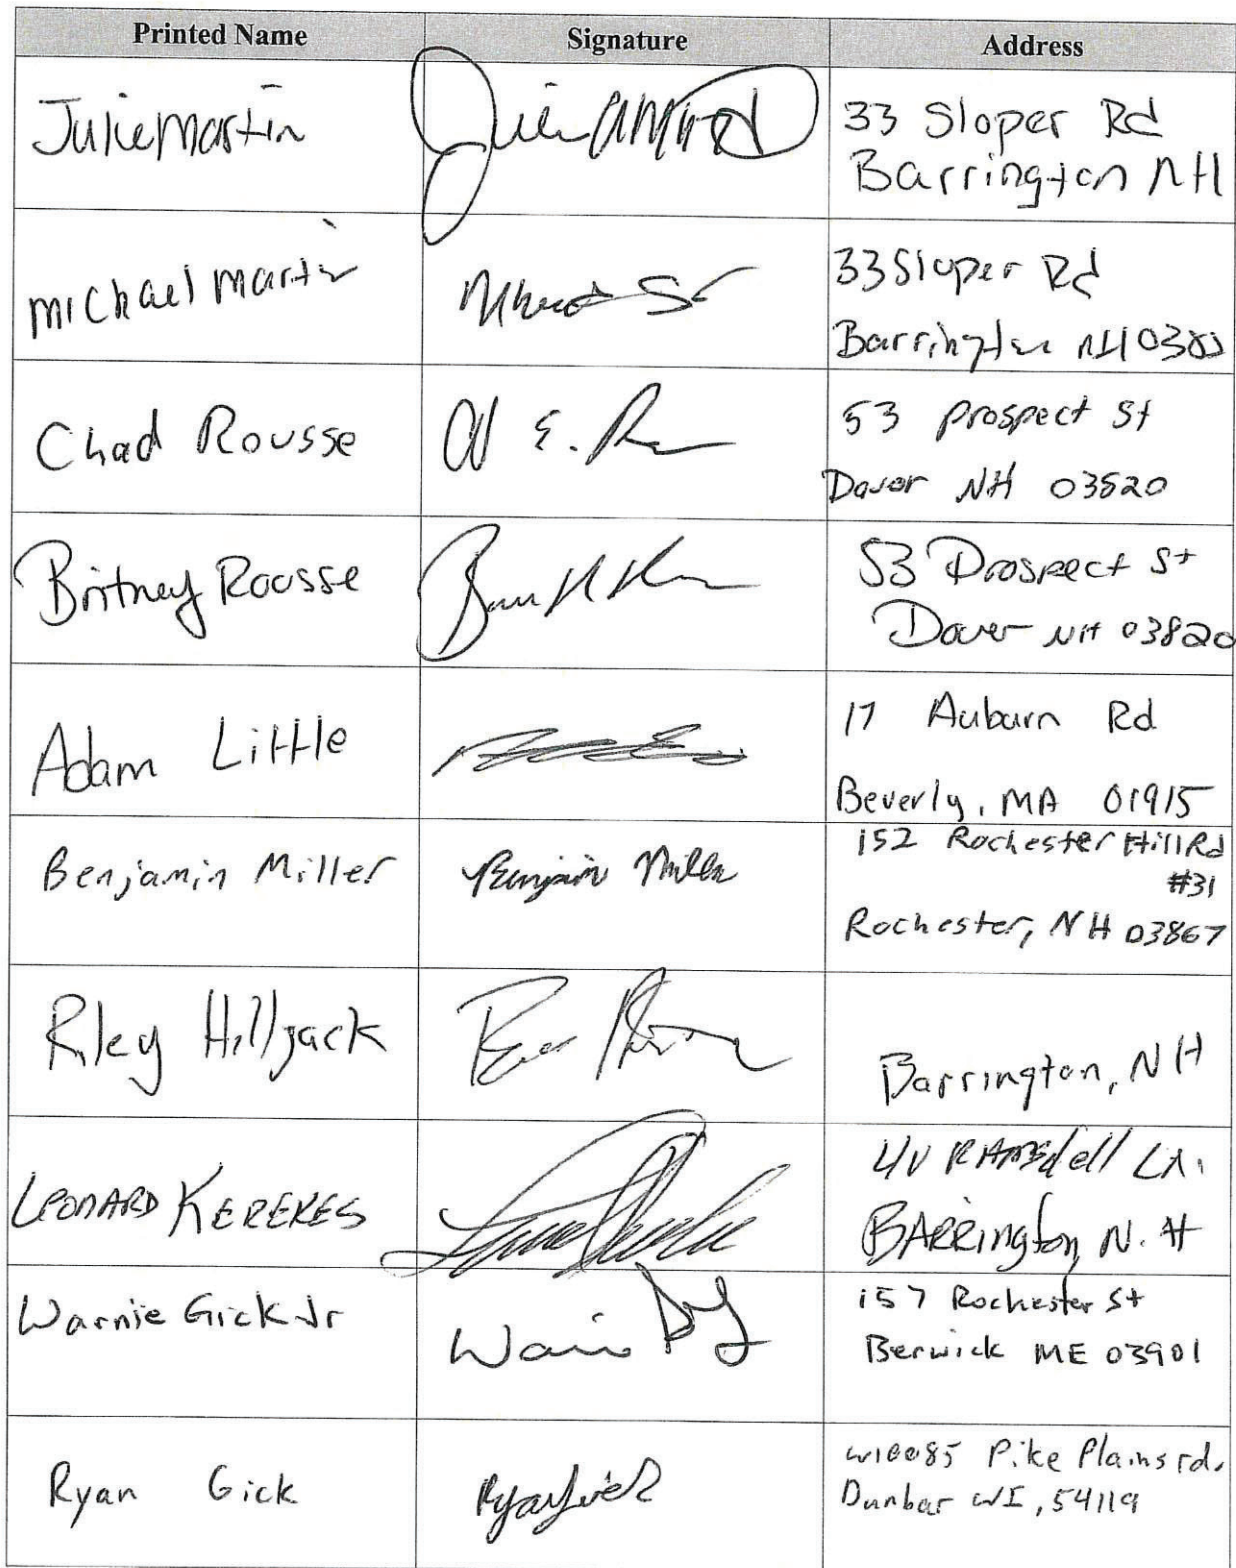 Printed Name Signature Address
Julie Martin
33 Sloper Rd
Barrington NH
Michael Martin
33 Sloper Rd
Barrington NH
Chad Rousse
53 prospect St
Dover NH 03820
Britney Rousse
53 Prospect St
Dover NH 03820
Adam Little
17 Auburn Rd
Beverly, MA 01915
Benjamin Miller Benjamin Miller
152 Rochester Hill Rd
#31
Rochester, NH 03867
Riley Hilljack
Barrington, NH
LEONARD KEREKES
RAMSdell LN.
BARRington, N.H
Warnie Gick Jr
157 Rochester St
Berwick ME 03901
Ryan Gick Ryan Gick
W10085 Pike Plains rd.
Dunbar WI, 54119